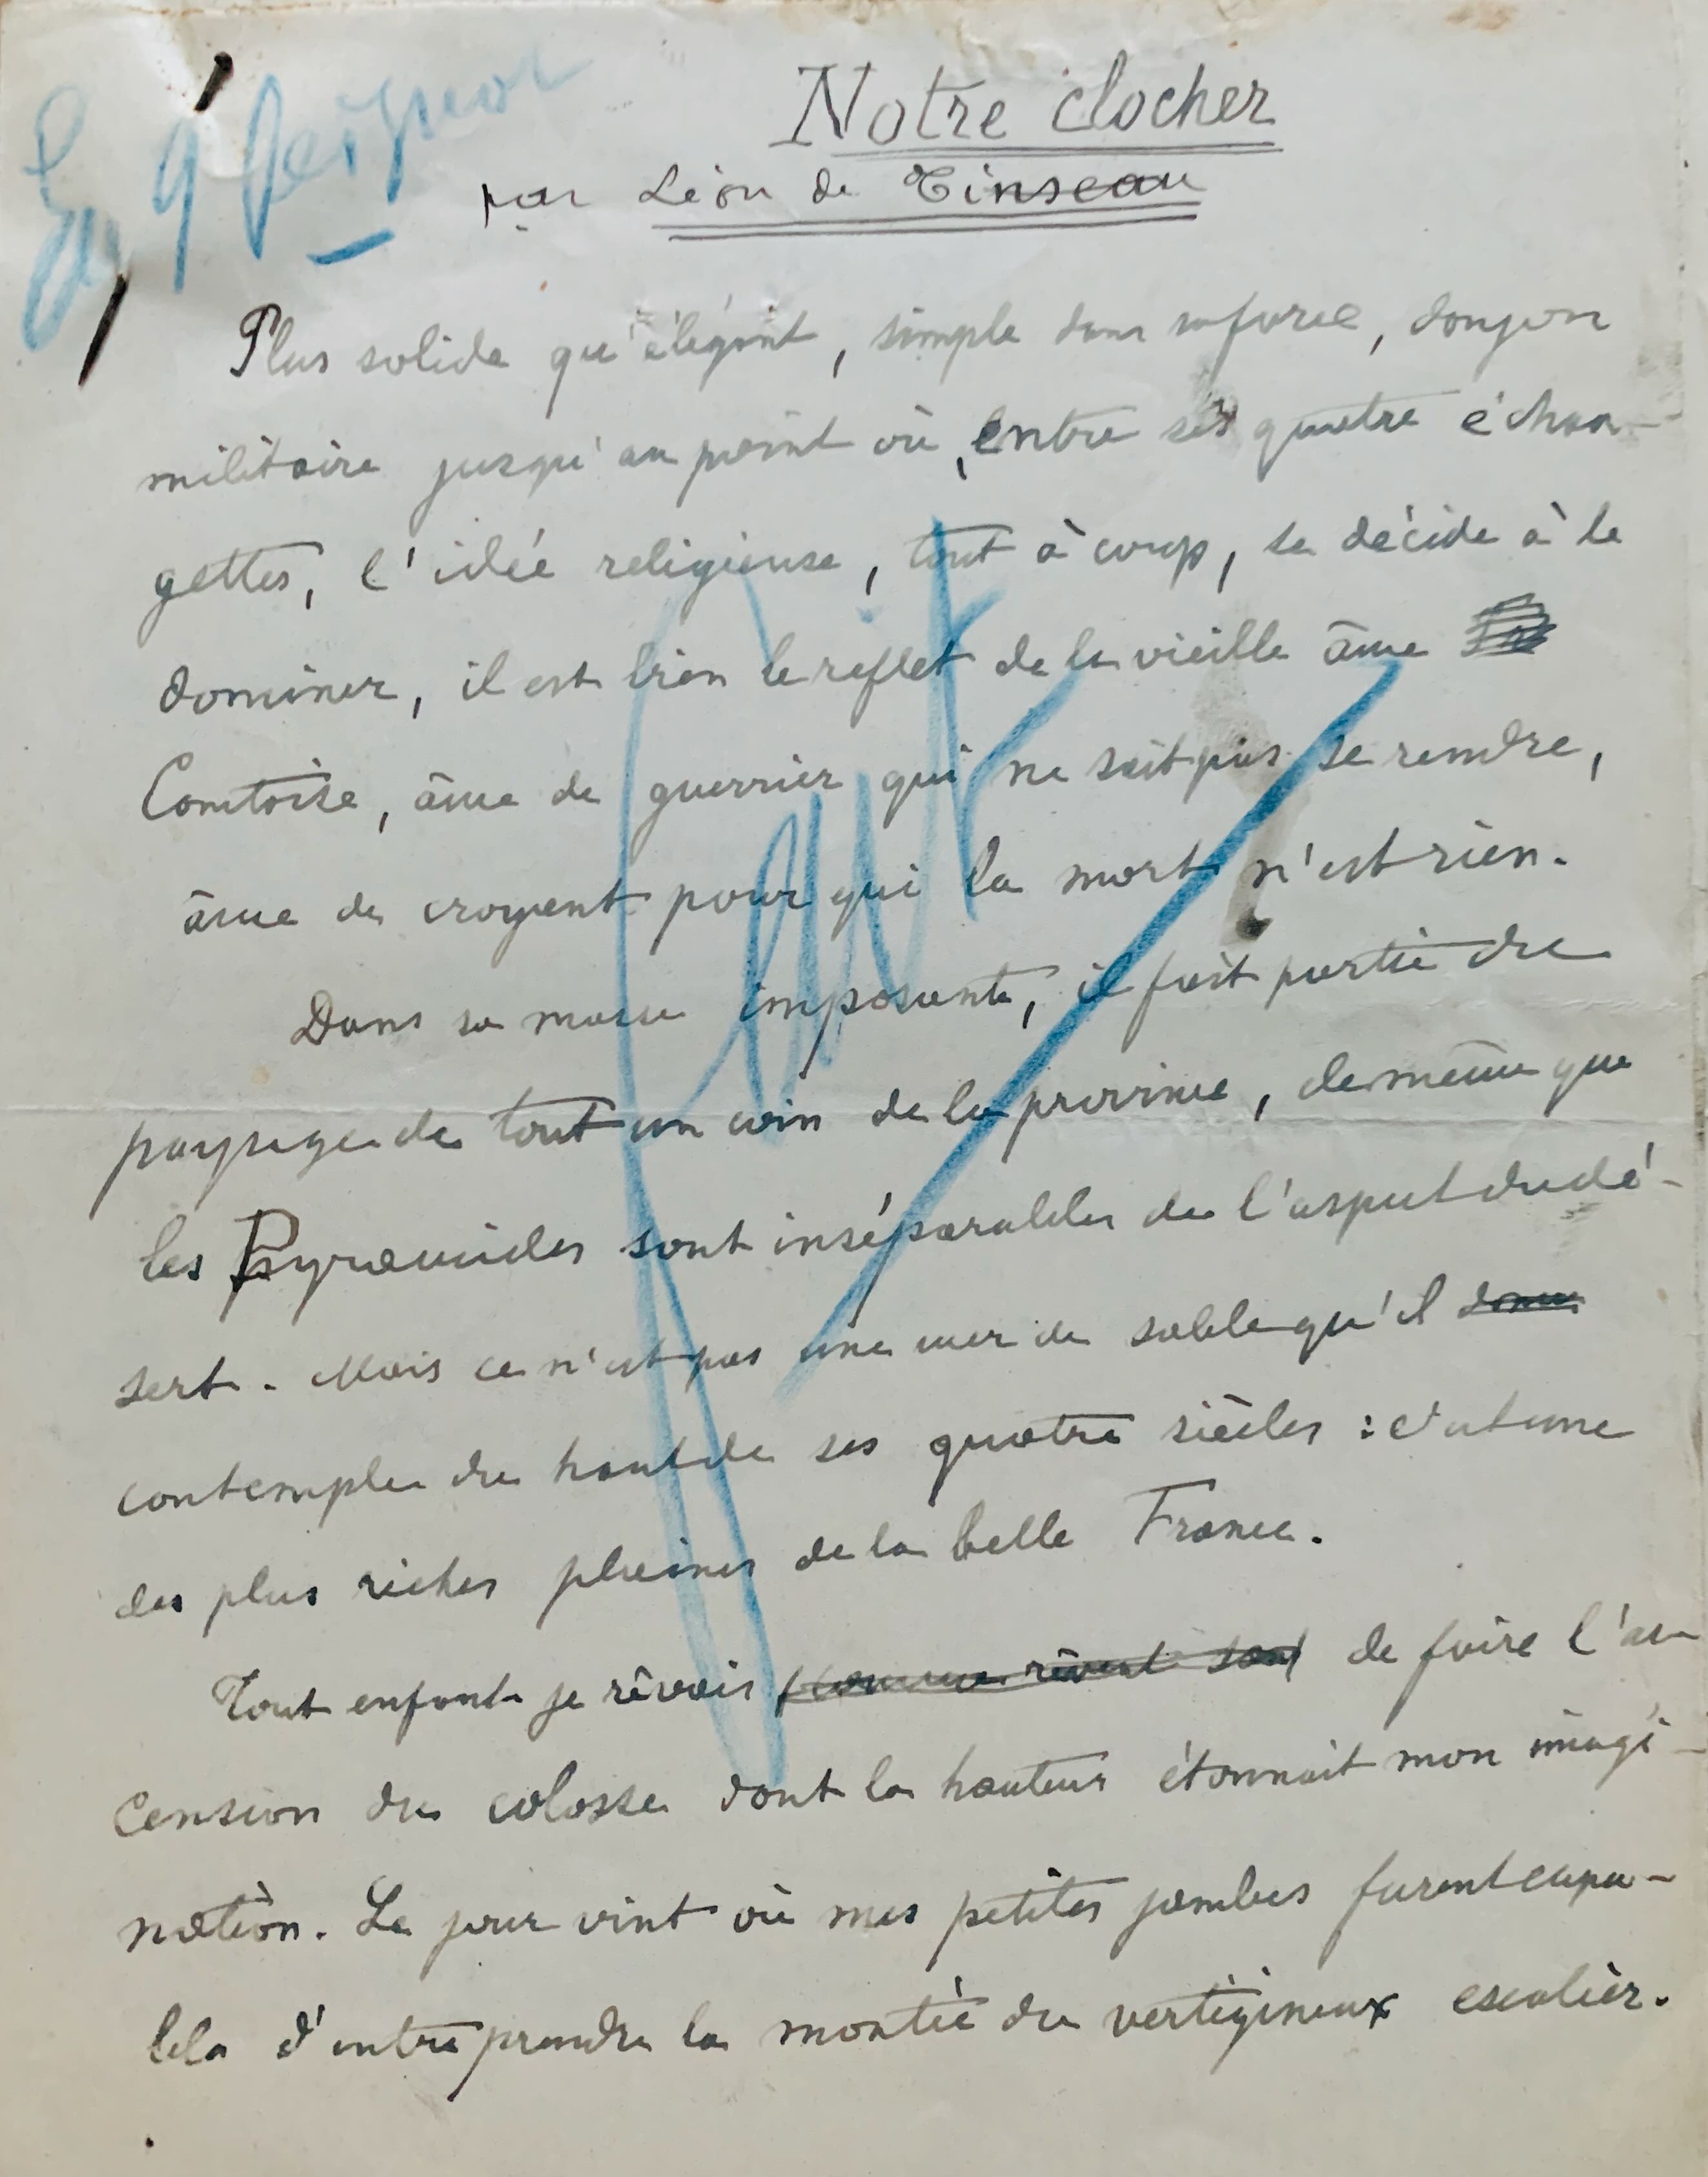 Notre clocher
par Léon de Tinseau
Plus solide qu'élégant, simple dans sa force, donjon
militaire jusqu'au point où, entre ses quatre échau-
gettes, l'idée religieuse, tout à coup, se décide à le
dominer, il est bien le reflet de la vieille âme
Comtoise, âme de guerrier qui ne sait pas se rendre,
âme de croyant pour qui la mort n'est rien.
Dans sa masse imposante, il fait partie du
paysage de tout un coin de la province, de même que
les Pyramides sont inséparables de l'aspect du dé-
sert. Mais ce n'est pas une mer de sable qu'il
contemple du haut de ses quatre siècles : c'est une
des plus riches plaines de la belle France.
Tout enfant je rêvais comme rêvent de faire l'as
cension du colosse dont la hauteur étonnait mon imagi-
nation. Le jour vint où mes petites jambes furent capa-
bles d'entreprendre la montée du vertigineux escalier.